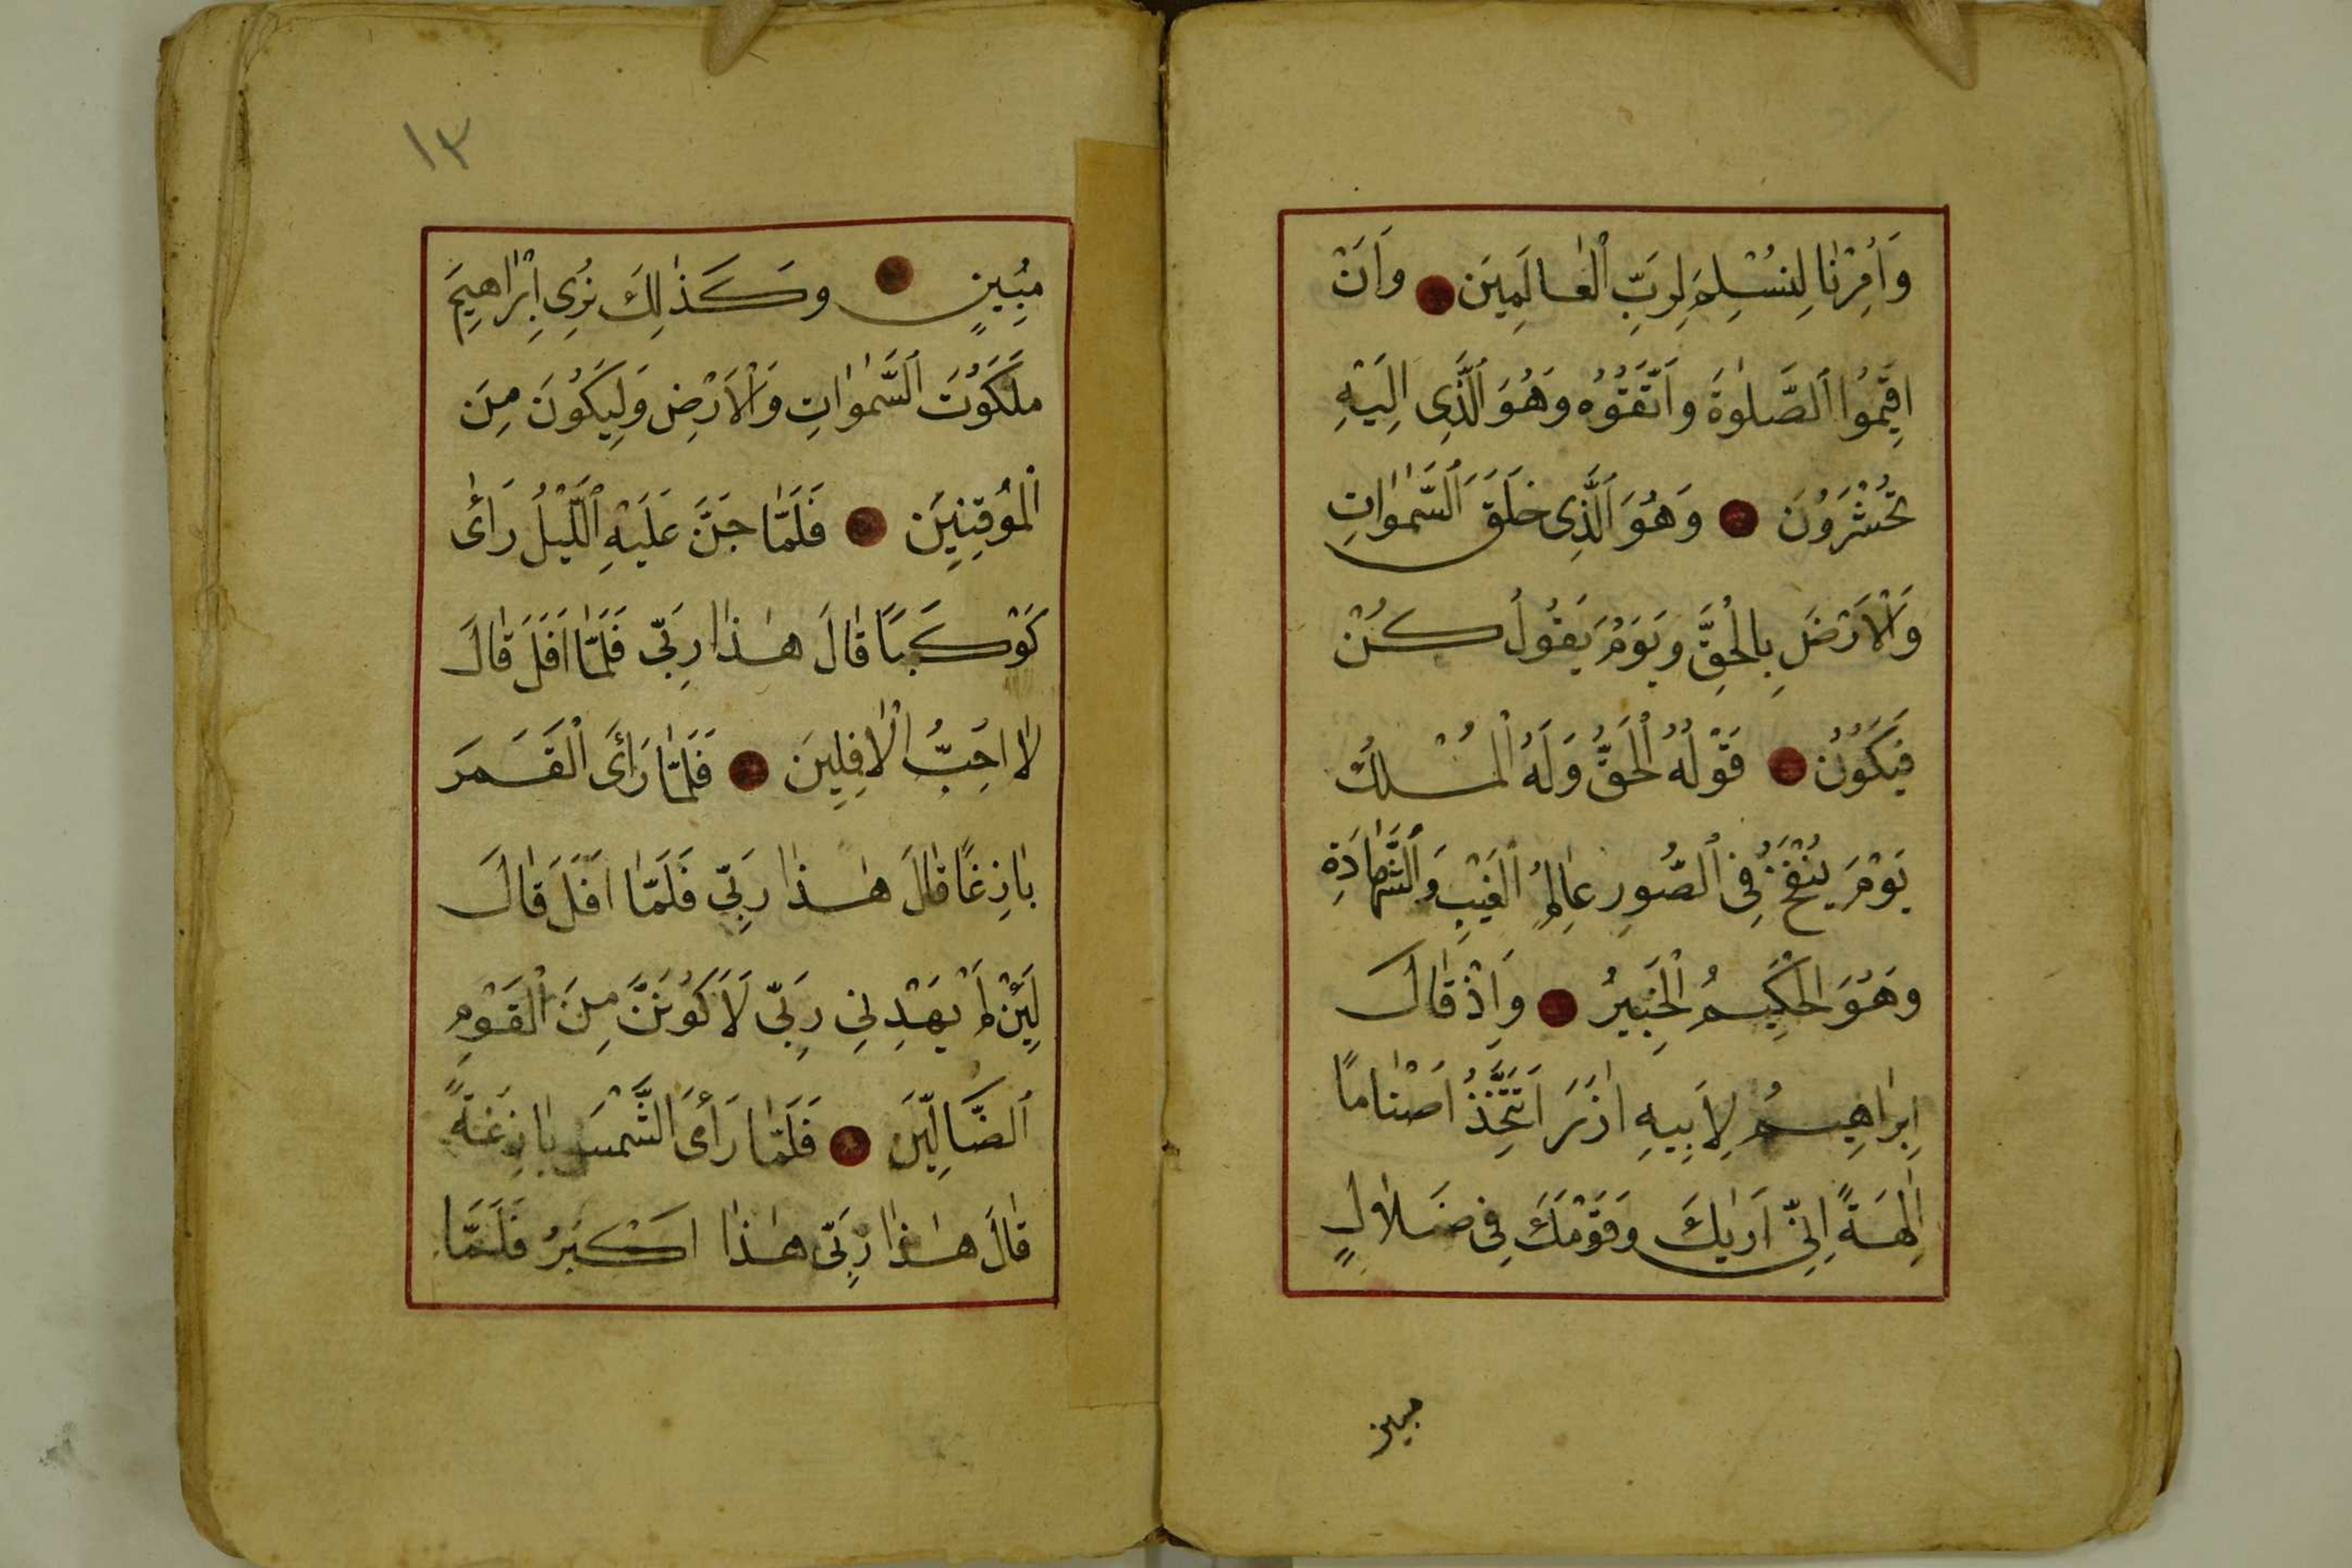 وَاُمِرْنَا لِنُسْلِمَ لِرَبِّ الْعَالَمِينَ وَاَنْ
اَقِيمُوا الصَّلٰوةَ وَاتَّقُوهُ وَهُوَ الَّذِى اِلَيْهِ
تُحْشَرُونَ وَهُوَ الَّذِى خَلَقَ السَّمٰوَاتِ
وَالْاَرْضَ بِالْحَقِّ وَيَوْمَ يَقُولُ كُنْ
فَيَكُونُ قَوْلُهُ الْحَقُّ وَلَهُ الْمُلْكُ
يَوْمَ يُنْفَخُ فِى الصُّورِ عَالِمُ الْغَيْبِ وَالشَّهَادَةِ
وَهُوَ الْحَكِيمُ الْخَبِيرُ وَاِذْ قَالَ
اِبْرَاهِيمُ لِاَبِيهِ اٰزَرَ اَتَتَّخِذُ اَصْنَامًا
اٰلِهَةً اِنِّى اَرٰيكَ وَقَوْمَكَ فِى ضَلَالٍ
مبين
١٣
مُبِينٍ وَكَذٰلِكَ نُرِى اِبْرَاهِيمَ
مَلَكُوتَ السَّمٰوَاتِ وَالْاَرْضِ وَلِيَكُونَ مِنَ
الْمُوقِنِينَ فَلَمَّا جَنَّ عَلَيْهِ الَّيْلُ رَاٰى
كَوْكَبًا قَالَ هٰذَا رَبِّى فَلَمَّا اَفَلَ قَالَ
لَا اُحِبُّ الْاٰفِلِينَ فَلَمَّا رَاَى الْقَمَرَ
بَازِغًا قَالَ هٰذَا رَبِّى فَلَمَّا اَفَلَ قَالَ
لَئِنْ لَمْ يَهْدِنِى رَبِّى لَاَكُونَنَّ مِنَ الْقَوْمِ
الضَّالِّينَ فَلَمَّا رَاَى الشَّمْسَ بَازِغَةً
قَالَ هٰذَا رَبِّى هٰذَا اَكْبَرُ فَلَمَّا